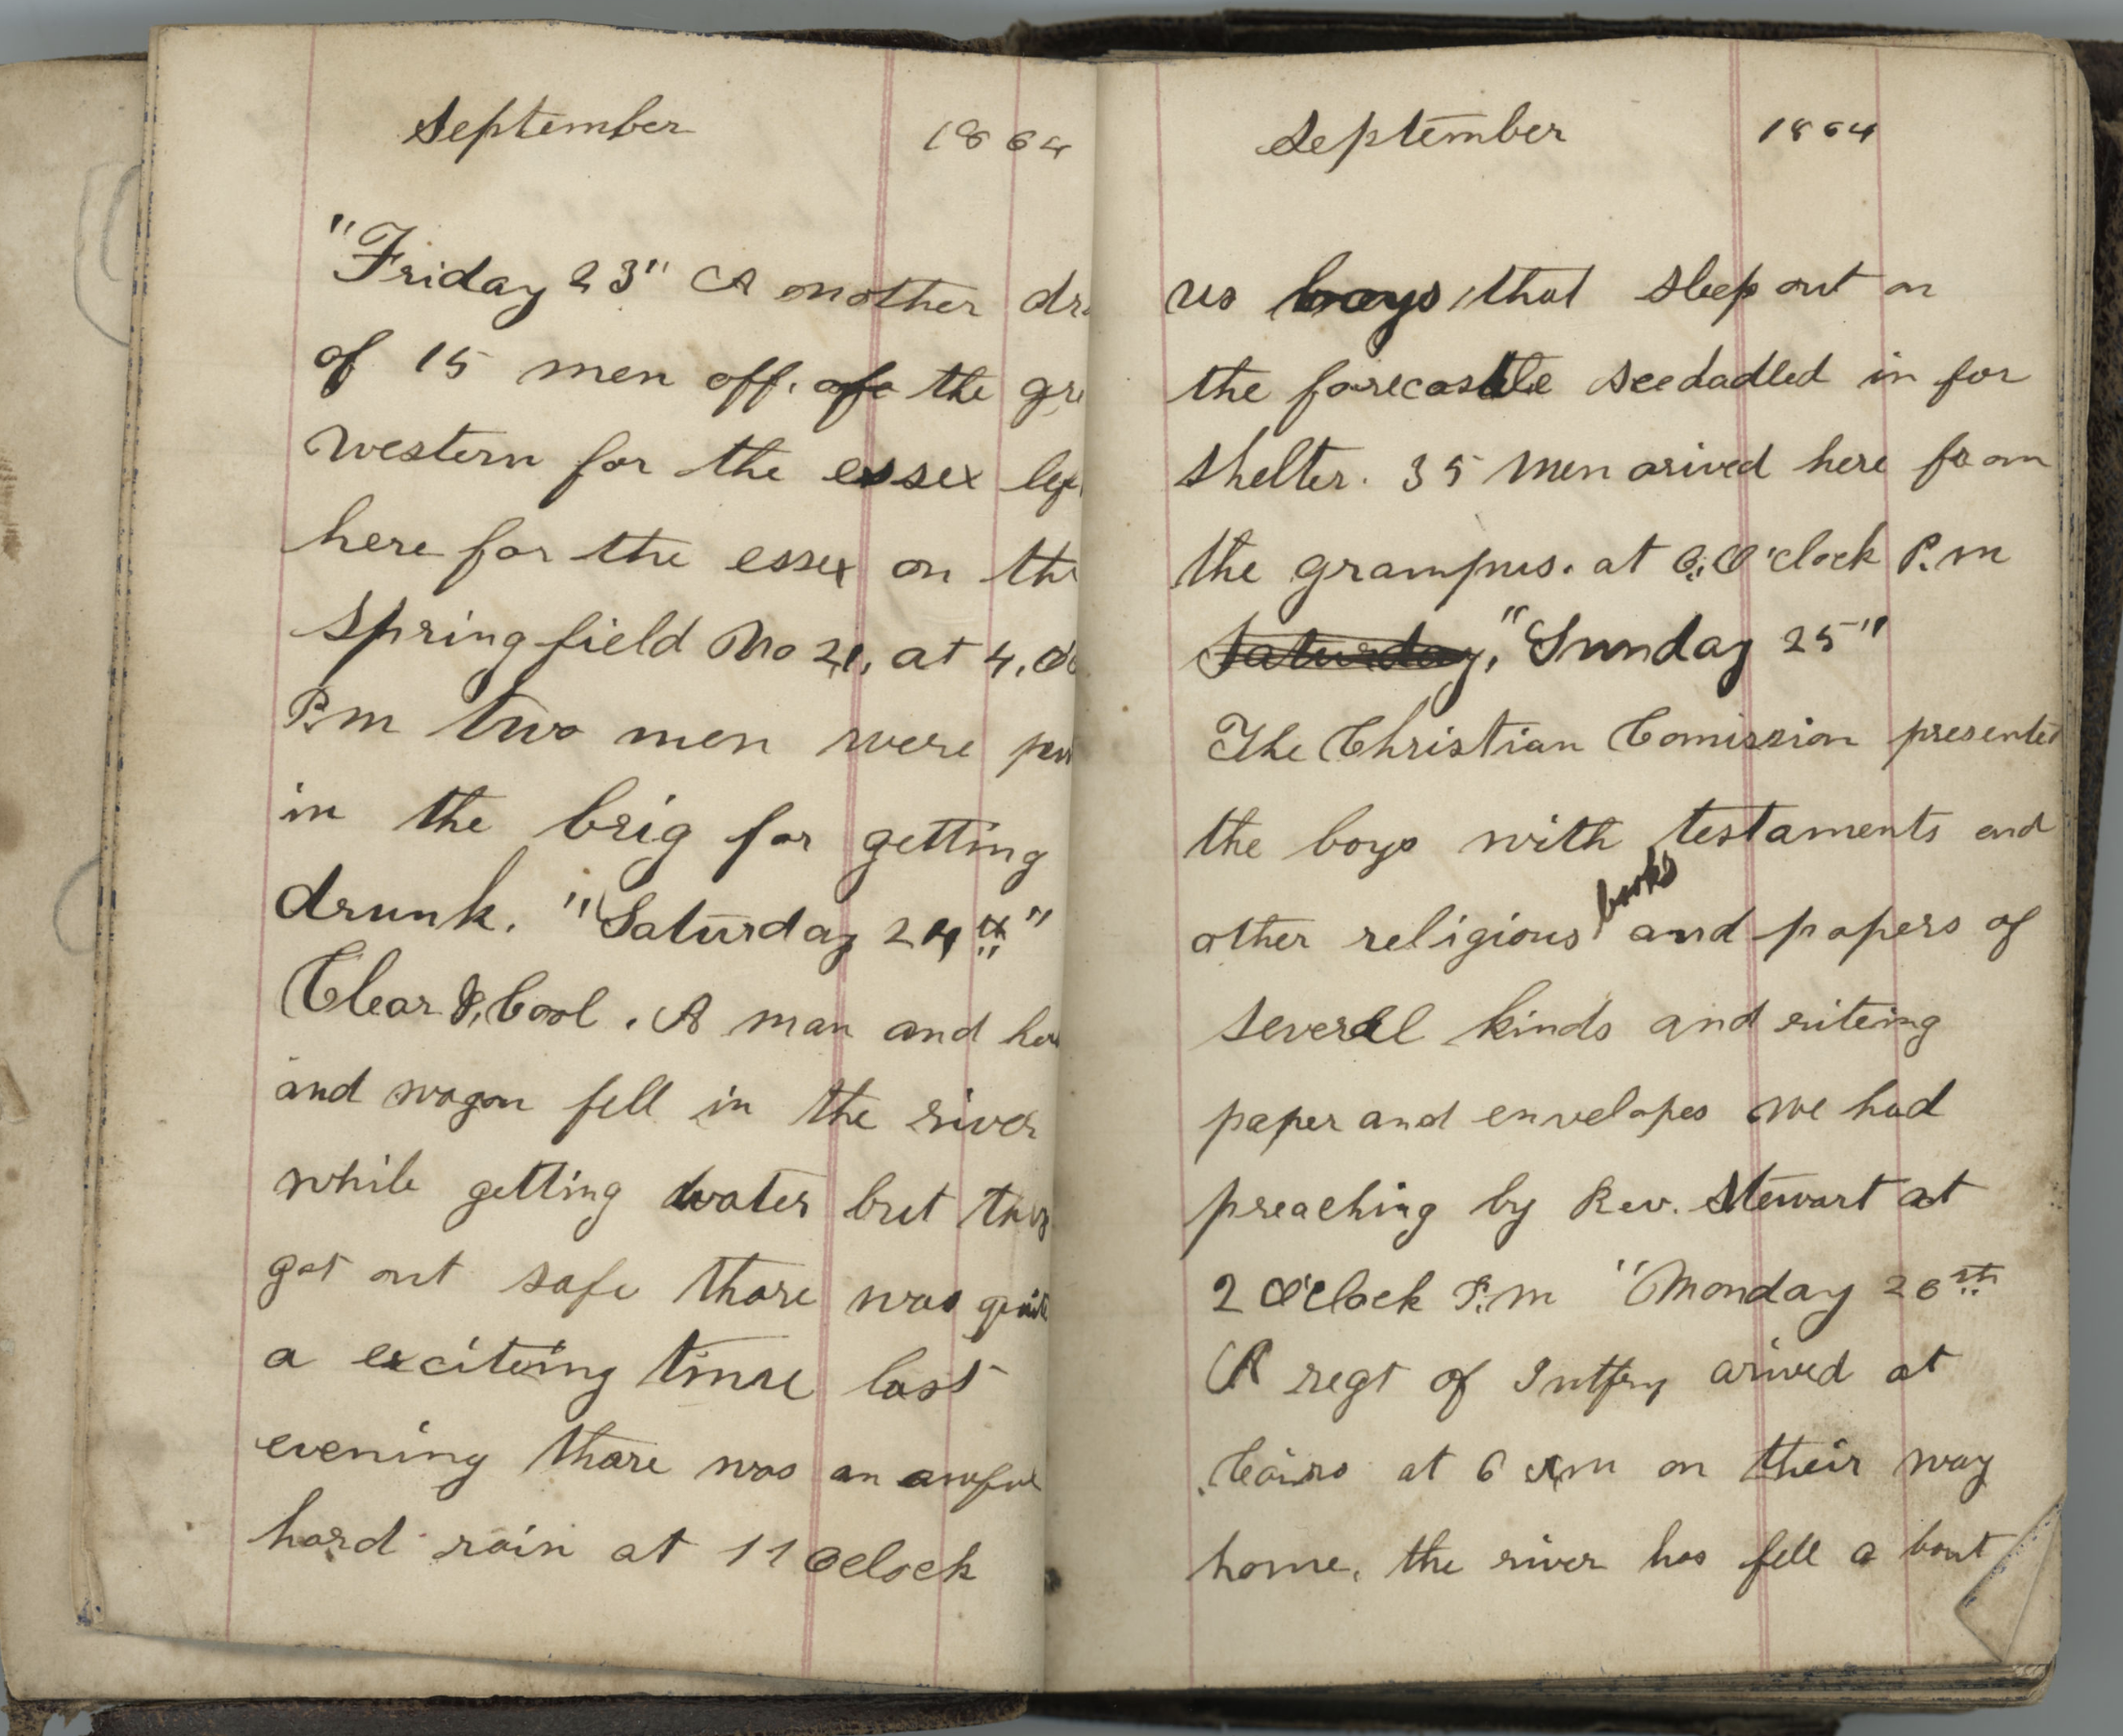 September 1864
"Friday 23" A nother
of 15 men off. of the
western for the essex
here for the essex on the
Springfield No 21, at 4,
P.m two men were
in the brig for getting
drunk. "Saturday 24th"
Clear & Cool. A man and
and wagon fell in the river
while getting water but they
got out safe thare was quite
a exciteing time last
evening thare was an awful
hard rain at 11 Oclock
September 1864
us boys that sleep out on
the forecastle scedadled in for
shelter. 35 men arived here from
the grampus. at 6, O'clock P.m
Saturday, "Sunday 25"
The Christian Comission presented
the boys with testaments and
other religious books and papers of
several kinds and riteing
paper and envelopes we had
preaching by Rev. Stewart at
2 O'clock P.m "Monday 26th
A regt of Intfry arived at
Cairo at 6 Am on their way
home. the river has fell a bout